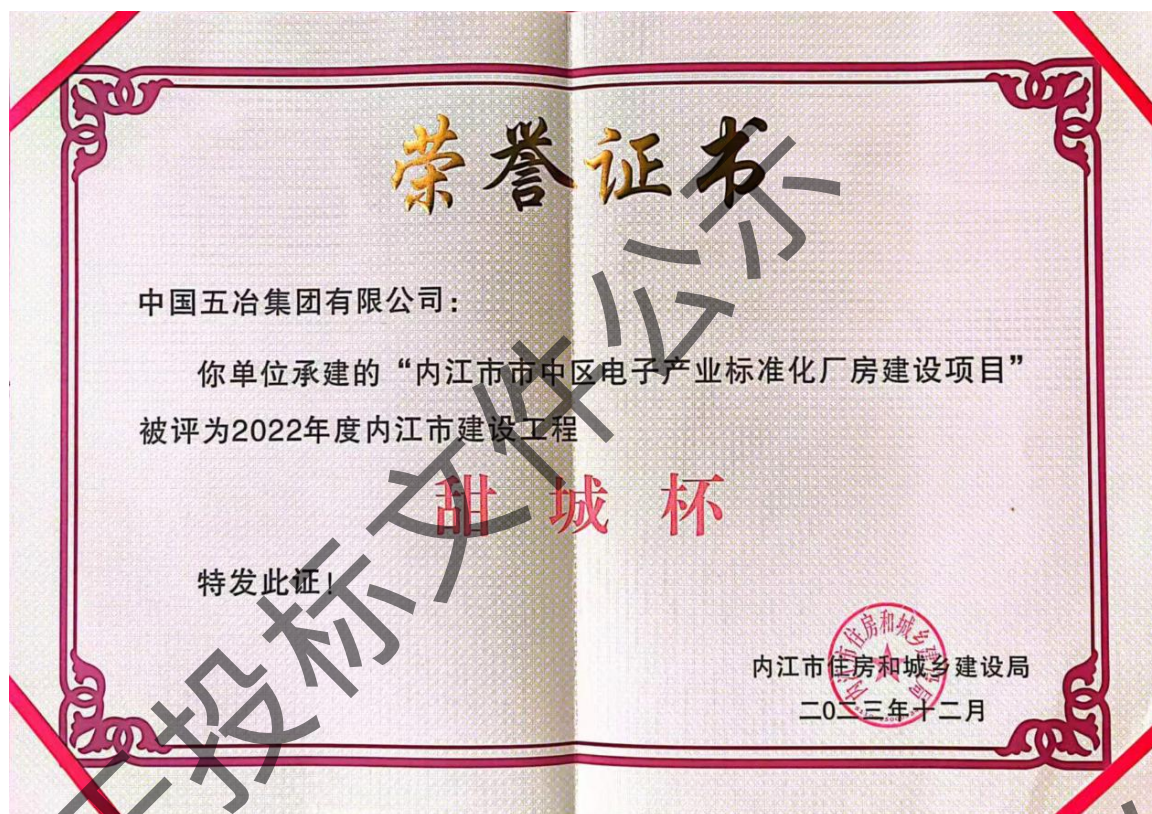 荣誉证书
中国五冶集团有限公司：
你单位承建的“内江市市中区电子产业标准化厂房建设项目”
被评为2022年度内江市建设工程
甜城杯
特发此证！
内江市住房和城乡建设局
二0二三年十二月
内江市住房和城乡建设局
投标文件公示